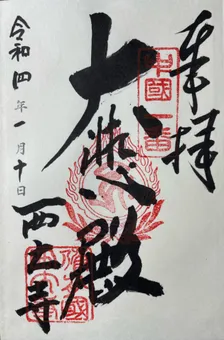 奉拝
中國一番
大悲殿
西大寺
令和四年一月十日